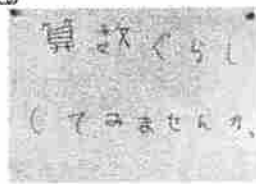 算数ぐらし
してみませんか、